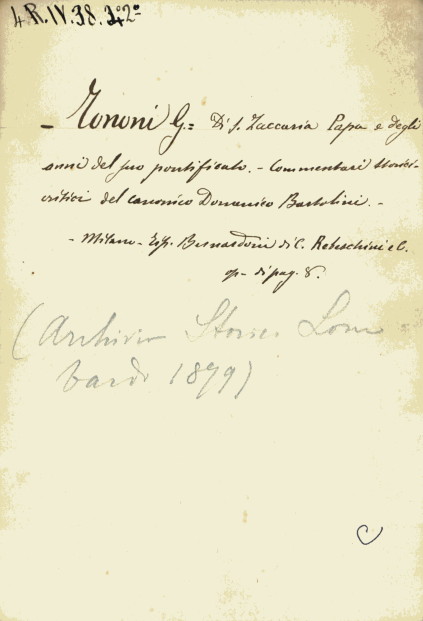 4.R.IV.38. 342º
- Tononi G= Di S. Zaccaria Papa e degli
anni del suo pontificato. - Commentari storici-
critici del canonico Domenico Bartolini. -
- Milano - Tip. Bernardoni di C. Rebeschini e C.
op- di pag. 8.
(Archivio Storico Lom-
bardo 1899)